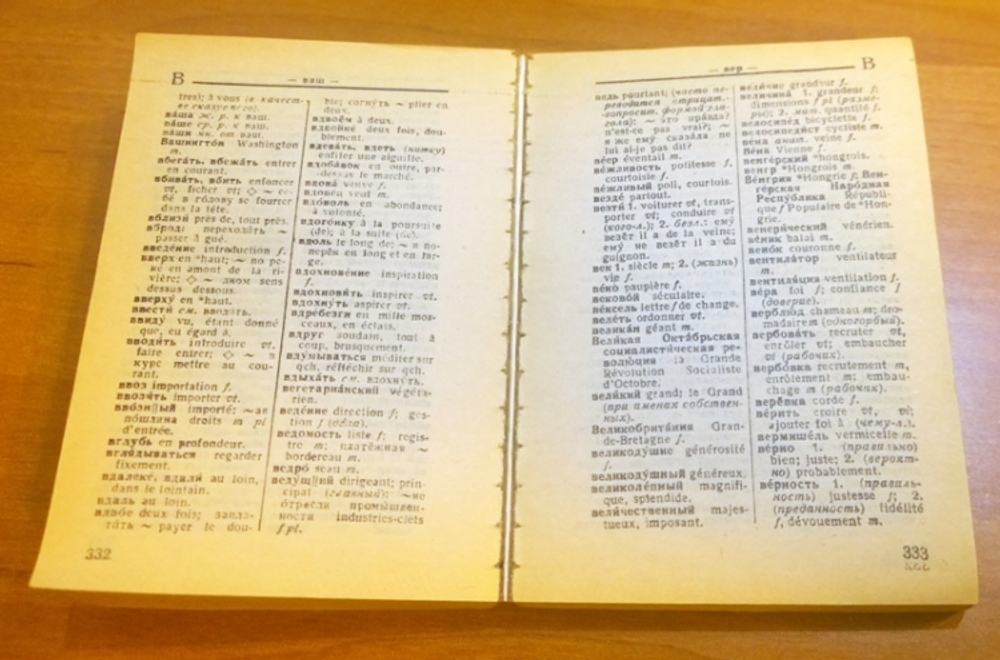 В — ваш —
tres); à vous (в качест-
ве сказуемого).
ва́ша ж. р. к ваш.
ва́ше ср. р. к ваш.
ва́ши мн. от ваш.
Вашингто́н Washington
m.
вбега́ть, вбежа́ть entrer
en courant.
вбива́ть, вбить enfoncer
vt, ficher vt; ◇ ~ се-
бе́ в го́лову se fourrer
dans la tête.
вблизи́ près de, tout près.
вброд: переходи́ть ~
passer à gué.
введе́ние introduction f.
вверх en *haut; ~ по ре-
ке́ en amont de la ri-
vière; ◇ ~ дном sens
dessus dessous.
вверху́ en *haut.
ввести́ см. вводи́ть.
ввиду́ vu, étant donné
que, eu égard à.
вводи́ть introduire vt,
faire entrer; ◇ ~ в
курс mettre au cou-
rant.
ввоз importation f.
ввози́ть importer vt.
ввозн||ы́й importé; ~ая
по́шлина droits m pl
d'entrée.
вглубь en profondeur.
вгля́дываться regarder
fixement.
вдалеке́, вдали́ au loin,
dans le lointain.
вдаль au loin.
вдво́е deux fois; запла-
ти́ть ~ payer le dou-
ble; согну́ть ~ plier en
deux.
вдвоём à deux.
вдвойне́ deux fois, dou-
blement.
вдева́ть, вдеть (нитку)
enfiler une aiguille.
вдоба́вок en outre, par-
dessus le marché.
вдова́ veuve f.
вдове́ц veuf m.
вдо́воль en abondance;
à volonté.
вдого́нку à la poursuite
(de); à la suite (de).
вдоль le long de; ~ и по-
перёк en long et en lar-
ge.
вдохнове́ние inspiration
f.
вдохнови́ть inspirer vt.
вдохну́ть aspirer vt.
вдре́безги en mille mor-
ceaux, en éclats.
вдруг soudain, tout à
coup, brusquement.
вду́мываться méditer sur
qch, réfléchir sur qch.
вдыха́ть см. вдохну́ть.
вегетариа́нский végéta-
rien.
веде́ние direction f; ges-
tion f (дела).
ве́домость liste f; regis-
tre m; платёжная ~
bordereau m.
ведро́ seau m.
веду́щ||ий dirigeant; prin-
cipal (главный); ~ие
о́трасли промы́шлен-
ности industries-clefs
f pl.
332
— вер — В
ведь pourtant; (часто пе-
реводится отрицат.-
вопросит. формой гла-
гола): ~ это пра́вда?
n'est-ce pas vrai?; ~
я же ему́ сказа́ла не
lui ai-je pas dit?
ве́ер éventail m.
ве́жливость politesse f,
courtoisie f.
ве́жливый poli, courtois.
везде́ partout.
везти́ 1. voiturer vt, trans-
porter vt; conduire vt
(кого-л.); 2. безл.: ему́
везёт il a de la veine;
ему́ не везёт il a du
guignon.
век 1. siècle m; 2. (жизнь)
vie f.
ве́ко paupière f.
веково́й séculaire.
ве́ксель lettre f de change.
веле́ть ordonner vt.
велика́н géant m.
Вели́кая Октя́брьская
социалисти́ческая ре-
волю́ция la Grande
Révolution Socialiste
d'Octobre.
вели́кий grand; le Grand
(при именах собствен-
ных).
Великобрита́ния Gran-
de-Bretagne f.
великоду́шие générosité
f.
великоду́шный généreux.
великоле́пный magnifi-
que, splendide.
вели́чественный majes-
tueux, imposant.
вели́чие grandeur f.
величина́ 1. grandeur f;
dimensions f pl (разме-
ры); 2. мат. quantité f.
велосипе́д bicyclette f.
велосипеди́ст cycliste m.
ве́на анат. veine f.
Ве́на Vienne f.
венге́рский *hongrois.
венгр *Hongrois m.
Ве́нгрия *Hongrie f; Вен-
ге́рская Наро́дная
Респу́блика Républi-
que f Populaire de *Hon-
grie.
венери́ческий vénérien.
ве́ник balai m.
вено́к couronne f.
вентиля́тор ventilateur
m.
вентиля́ция ventilation f.
ве́ра foi f; confiance f
(доверие).
верблю́д chameau m; dro-
madaire m (одногорбый).
вербова́ть recruter vt,
enrôler vt; embaucher
vt (рабочих).
вербо́вка recrutement m,
enrôlement m; embau-
chage m (рабочих).
верёвка corde f.
ве́рить croire vt, vi;
ajouter foi à (чему-л.).
вермише́ль vermicelle m.
ве́рно 1. (правильно)
bien; juste; 2. (вероят-
но) probablement.
ве́рность 1. (правиль-
ность) justesse f; 2.
(преданность) fidélité
f, dévouement m.
333